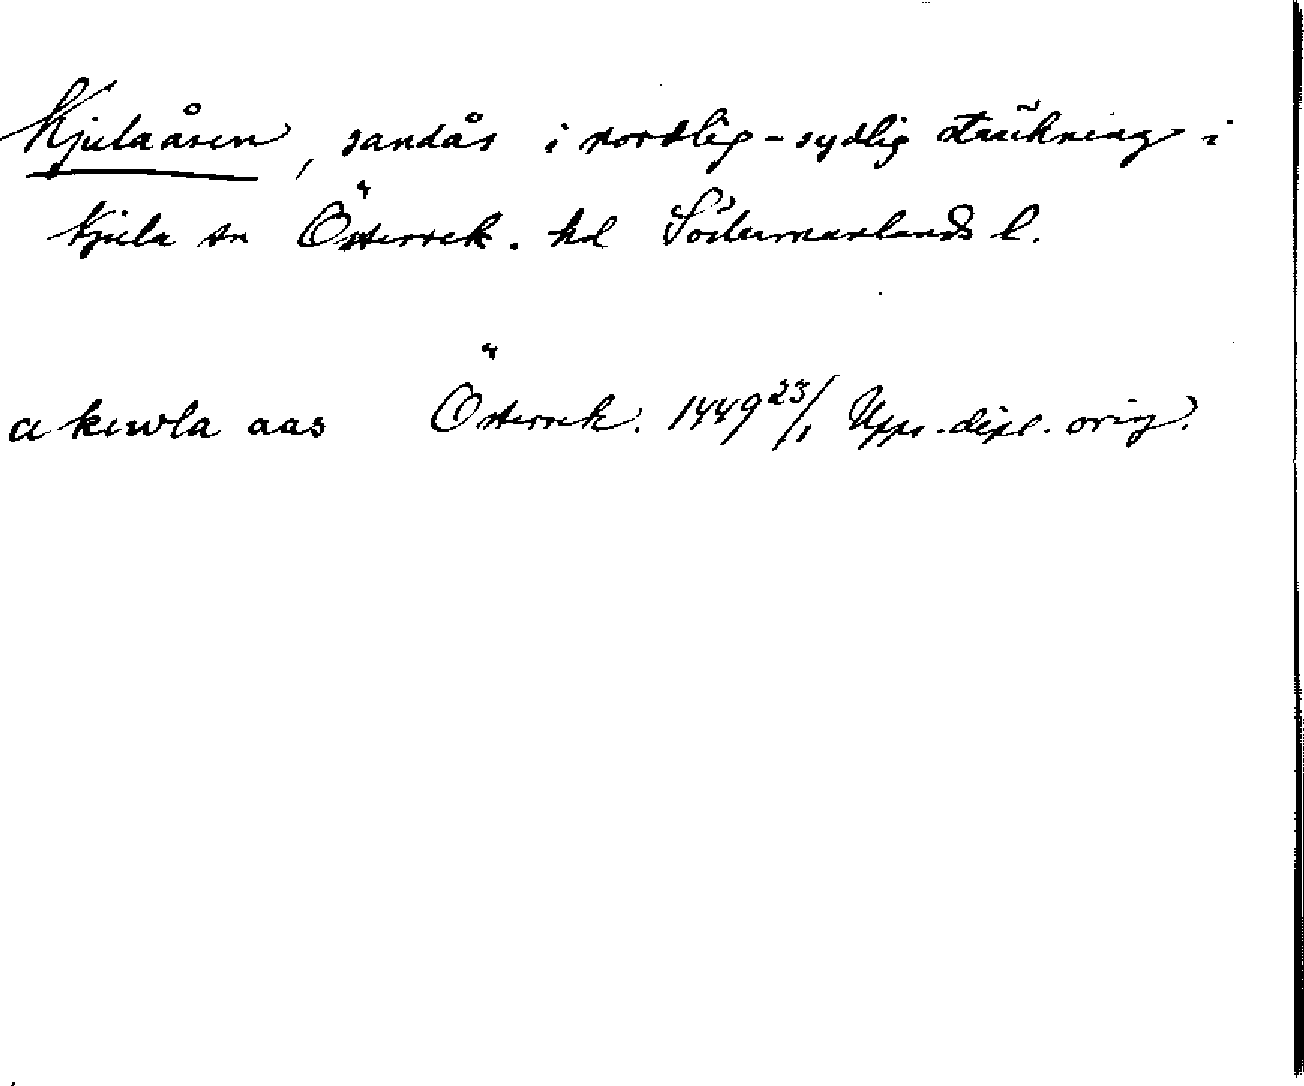 Kjulaåsen, sandås i nordlig-sydlig sträckning i
Kjula sn Österrek. hd Södermanlands l.
a kiwla aas Österrek. 1449 23/1 Upps. dipl. orig.